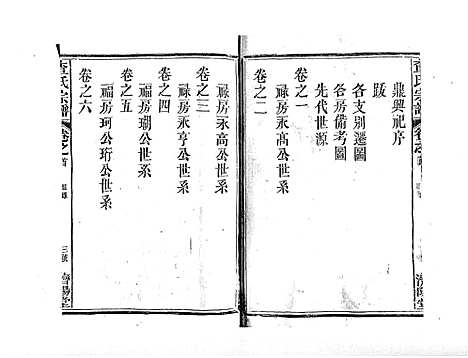 鼎興祀序
跋
各支別遷圖
各房備考圖
先代世源
卷之一
祿房永高公世系
卷之二
卷之三
祿房永高公世系
卷之四
祿房永亨公世系
卷之五
福房瑚公世系
卷之六
福房珂公珩公世系
氏宗譜
卷之首
三號
濟陽堂